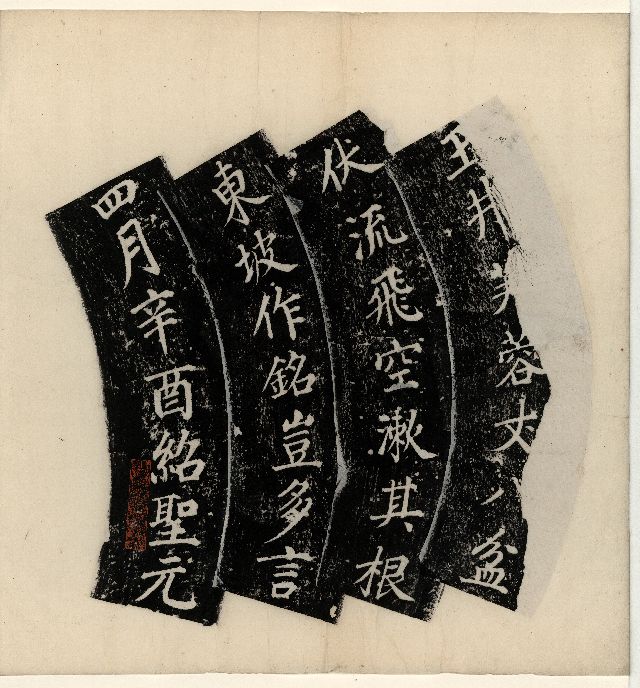 玉井芙蓉丈八盆
伏流飛空漱其根
東坡作銘豈多言
四月辛酉紹聖元